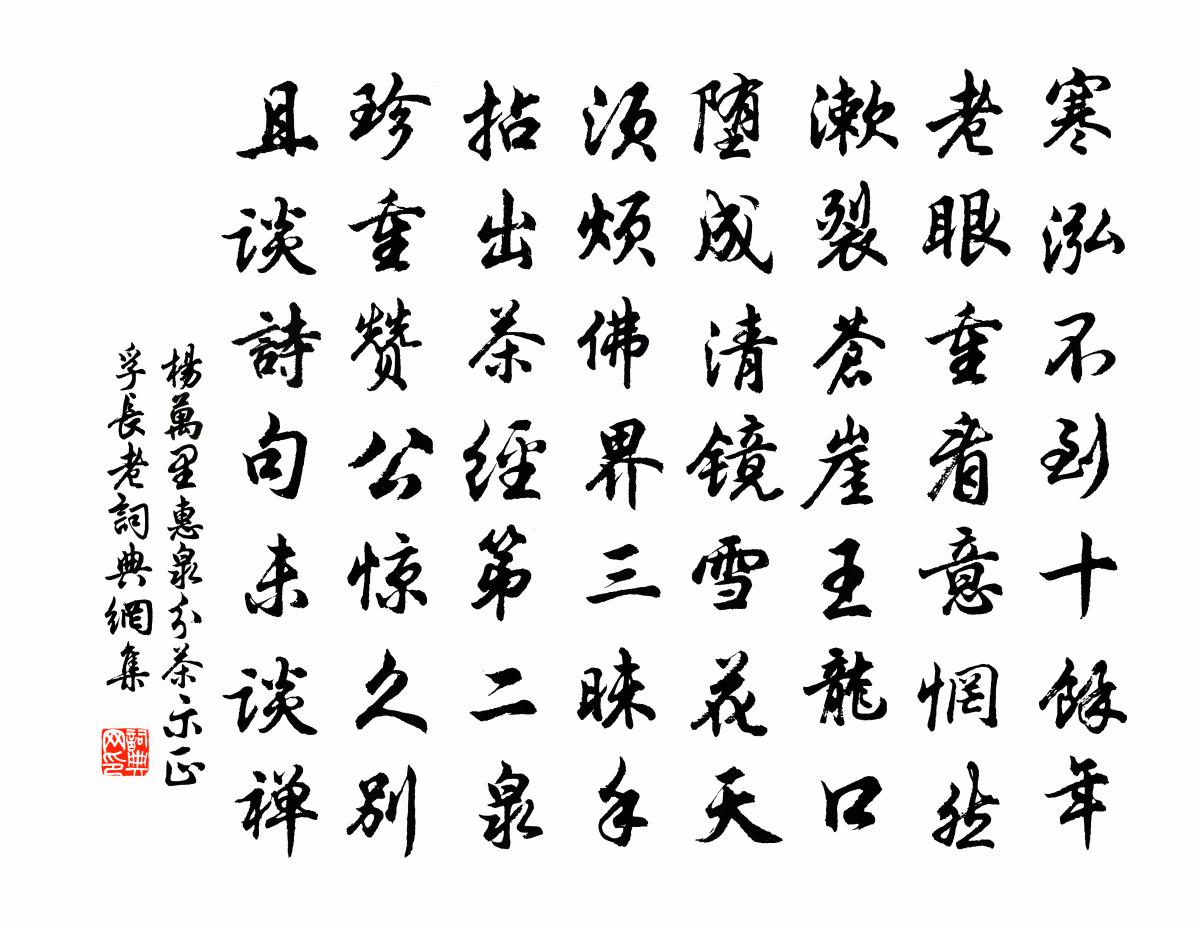 寒泓不到十餘年
老眼重看意惘然
漱裂蒼崖玉龍口
堕成清镜雪花天
须烦佛界三昧手
拈出茶經第二泉
珍重赞公惊久别
且谈詩句未谈禅
楊萬里惠泉分茶示正
孚長老詞典網集
詞典网印